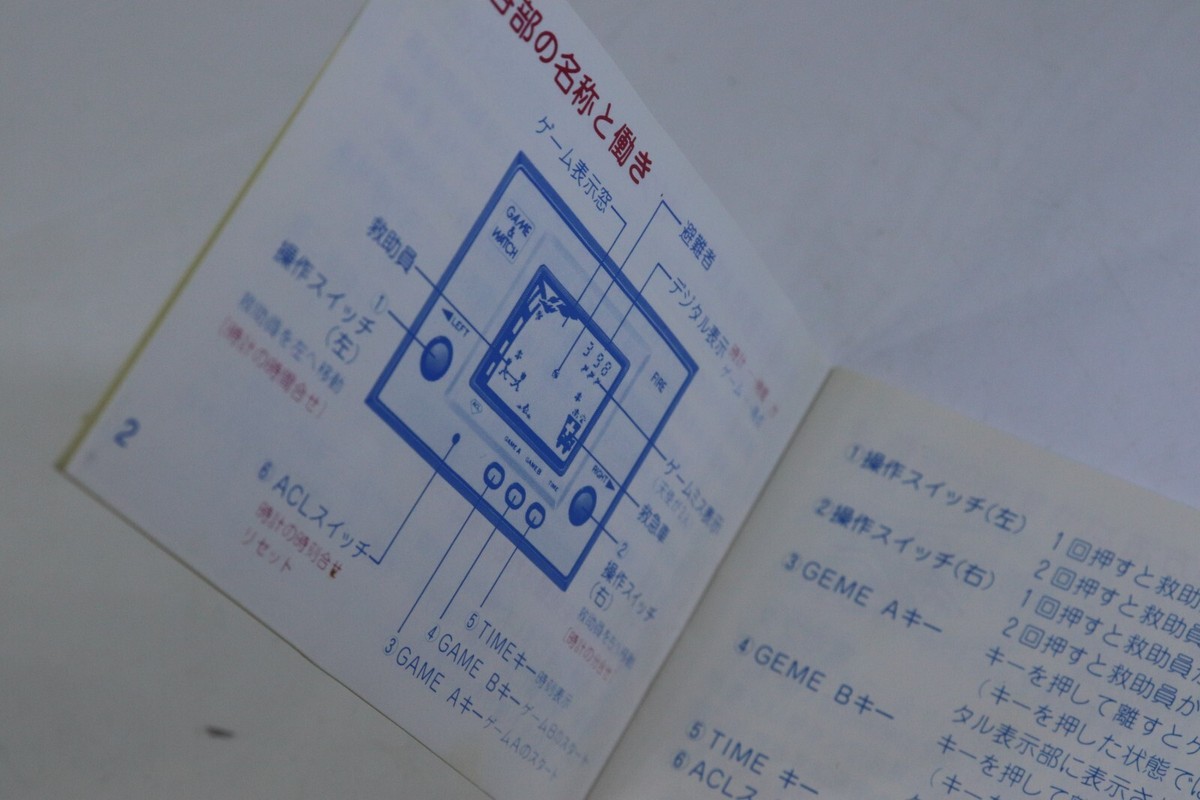 各部の名称と働き
ゲーム表示窓
避難者
デジタル表示
救助員
①
操作スイッチ
(左)
救助員を左へ移動
(時計の時間合せ)
GAME
&
WATCH
◀LEFT
398
FIRE
GAME A
GAME B
TIME
RIGHT▶
ゲームミス表示
救急車
2
操作スイッチ
(右)
6 ACLスイッチ
時計の時刻合せ
リセット
5 TIMEキー時刻表示
4 GAME BキーゲームBのスタート
3 GAME AキーゲームAのスタート
2
①操作スイッチ(左)
②操作スイッチ(右)
③GEME Aキー
④GEME Bキー
⑤TIME キー
⑥ACLス
1回押すと救助
2回押すと救助員
1回押すと救助員
2回押すと救助員が
キーを押して離すとゲ
(キーを押した状態では
タル表示部に表示さ
キーを押して
(キー